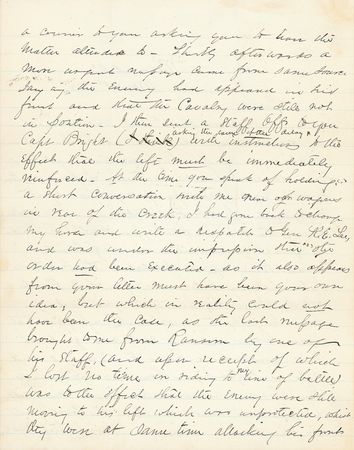 a courier to you asking you to have the
matter attended to - Shortly afterwards a
more urgent message came from same source
saying, the Enemy had appeared in his
front and that the Cavalry were still not
in position - I then sent a Staff Off to you
asking the
Capt Bright (I think) with instructions to the
effect that the left must be immediately
reinforced - At the time you speak of holding
a short conversation with me near our wagons
in rear of the Creek, I had gone back to change
my horse and write a dispatch to Gen R. E. Lee,
and was under the impression that my
order had been executed - as it also appears
from your letter must have been your own
idea, but which in reality could not
have been the case, as the last message
brought me from Ransom by one of
his Staff, (and upon receipt of which
I lost no time in riding to my line of battle)
was to the effect that the Enemy were still
moving to his left which was unprotected, whilst
they were at same time attacking his front